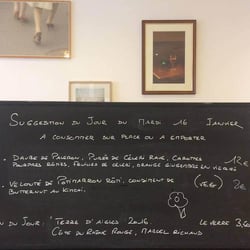 Suggestion du Jour du Mardi 16 Janvier
A consommer sur place ou à emporter
• Daube de Paleron, Purée de Céleri Rave, Carottes
feuilles de céleri, orange gingembre en
• Velouté de Potimarron rôti, condiment de (végé)
Butternut au Kimchi.
du Jour: Terre d'Aigles 2016 le verre
Côte du Rhône Rouge, Marcel Richaud